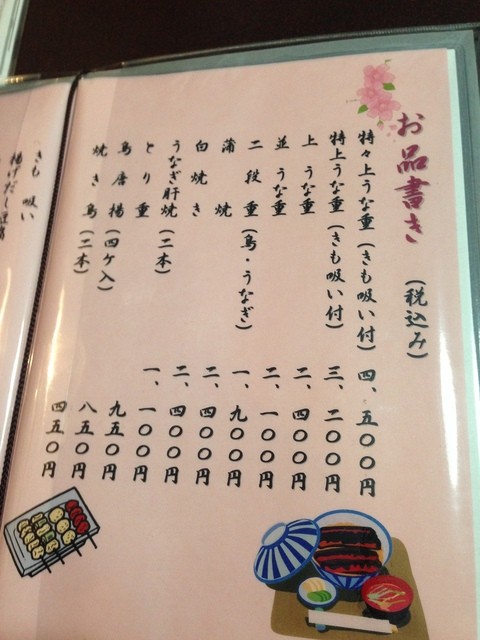 お品書き (税込み)
特々上うな重 (きも吸い付) 四、五〇〇円
特上うな重 (きも吸い付) 三、二〇〇円
上 うな重 二、四〇〇円
並 うな重 二、一〇〇円
二段重 (鳥・うなぎ) 一、九〇〇円
蒲焼 二、四〇〇円
白焼き 二、四〇〇円
うなぎ肝焼 (二本) 一、一〇〇円
とり重 九五〇円
鳥唐揚 (四ケ入) 八五〇円
焼き鳥 (二本) 四五〇円
きも吸い
揚げだし豆腐